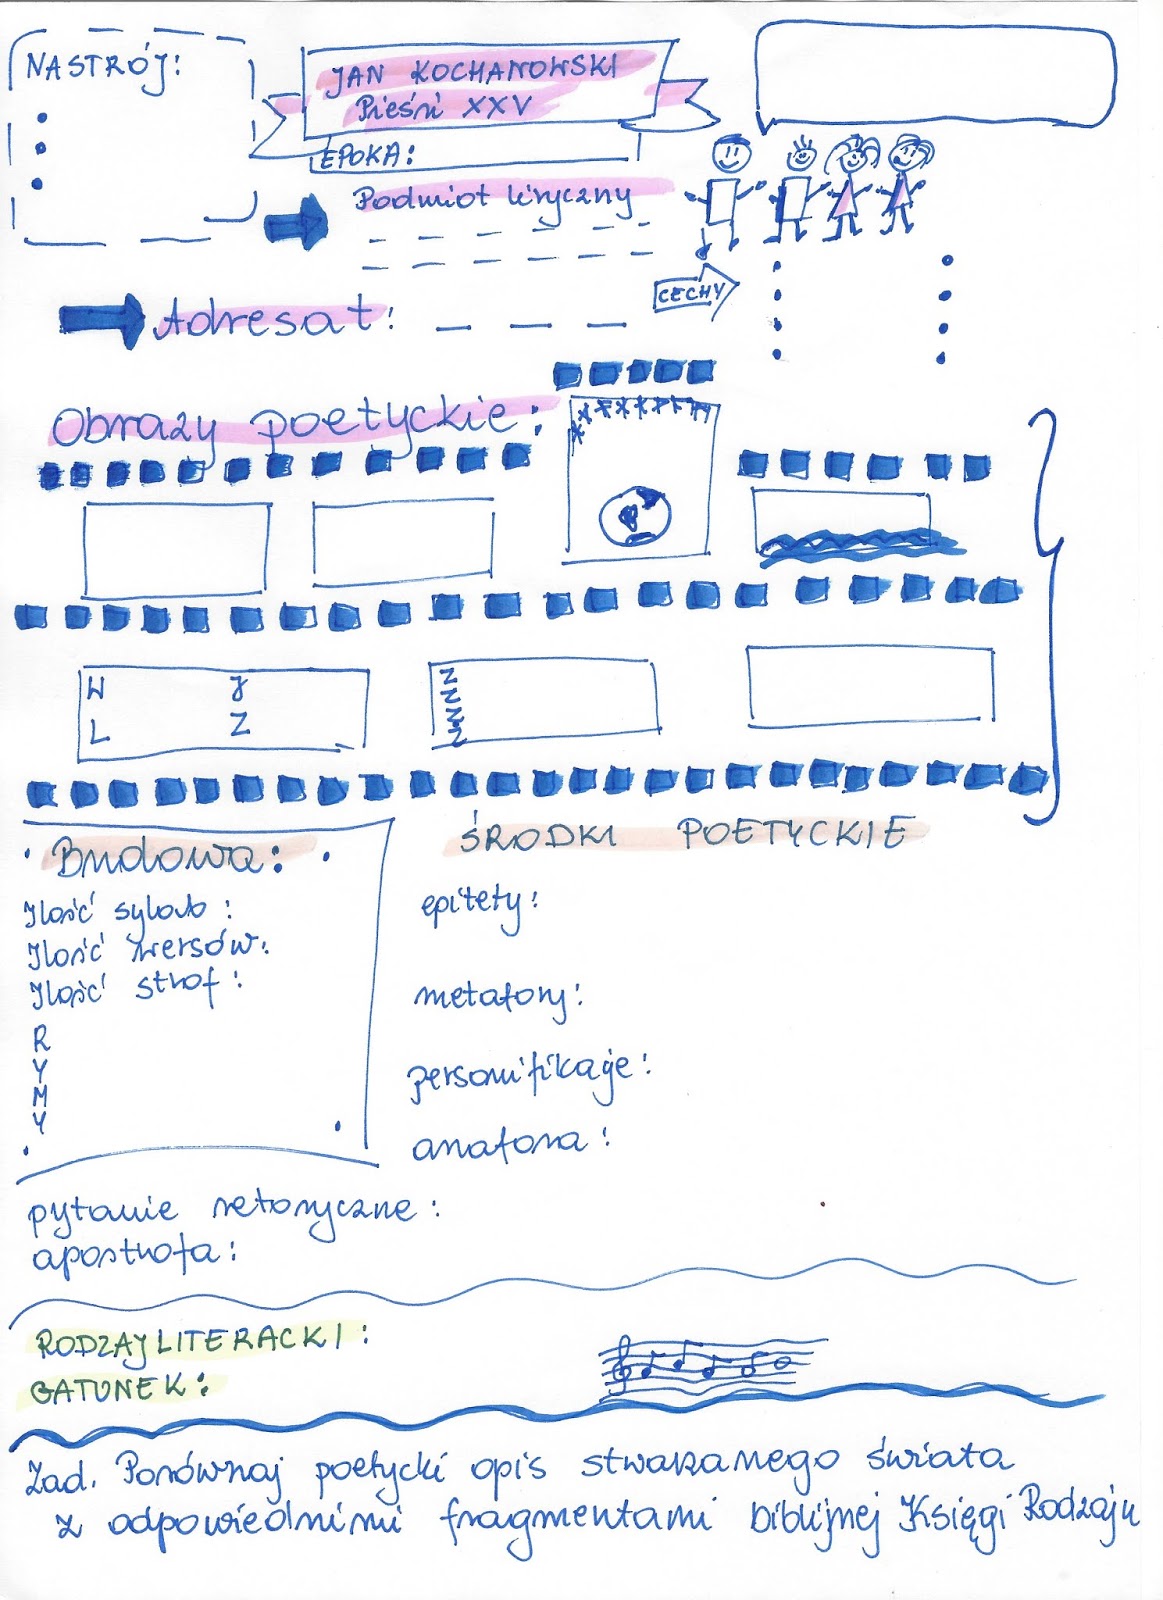 NASTRÓJ:
JAN KOCHANOWSKI
Pieśń XXV
EPOKA:
Podmiot liryczny
CECHY
Adresat:
Obrazy poetyckie:
W J
L Z
N
N
N
N
N
Budowa:
ŚRODKI POETYCKIE
Ilość sylab:
Ilość wersów:
Ilość strof:
R
Y
M
Y
epitety:
metafory:
personifikacje:
anafora:
pytanie retoryczne:
apostrofa:
RODZAJ LITERACKI:
GATUNEK:
Zad. Porównaj poetycki opis stwarzanego świata
z odpowiednimi fragmentami biblijnej Księgi Rodzaju